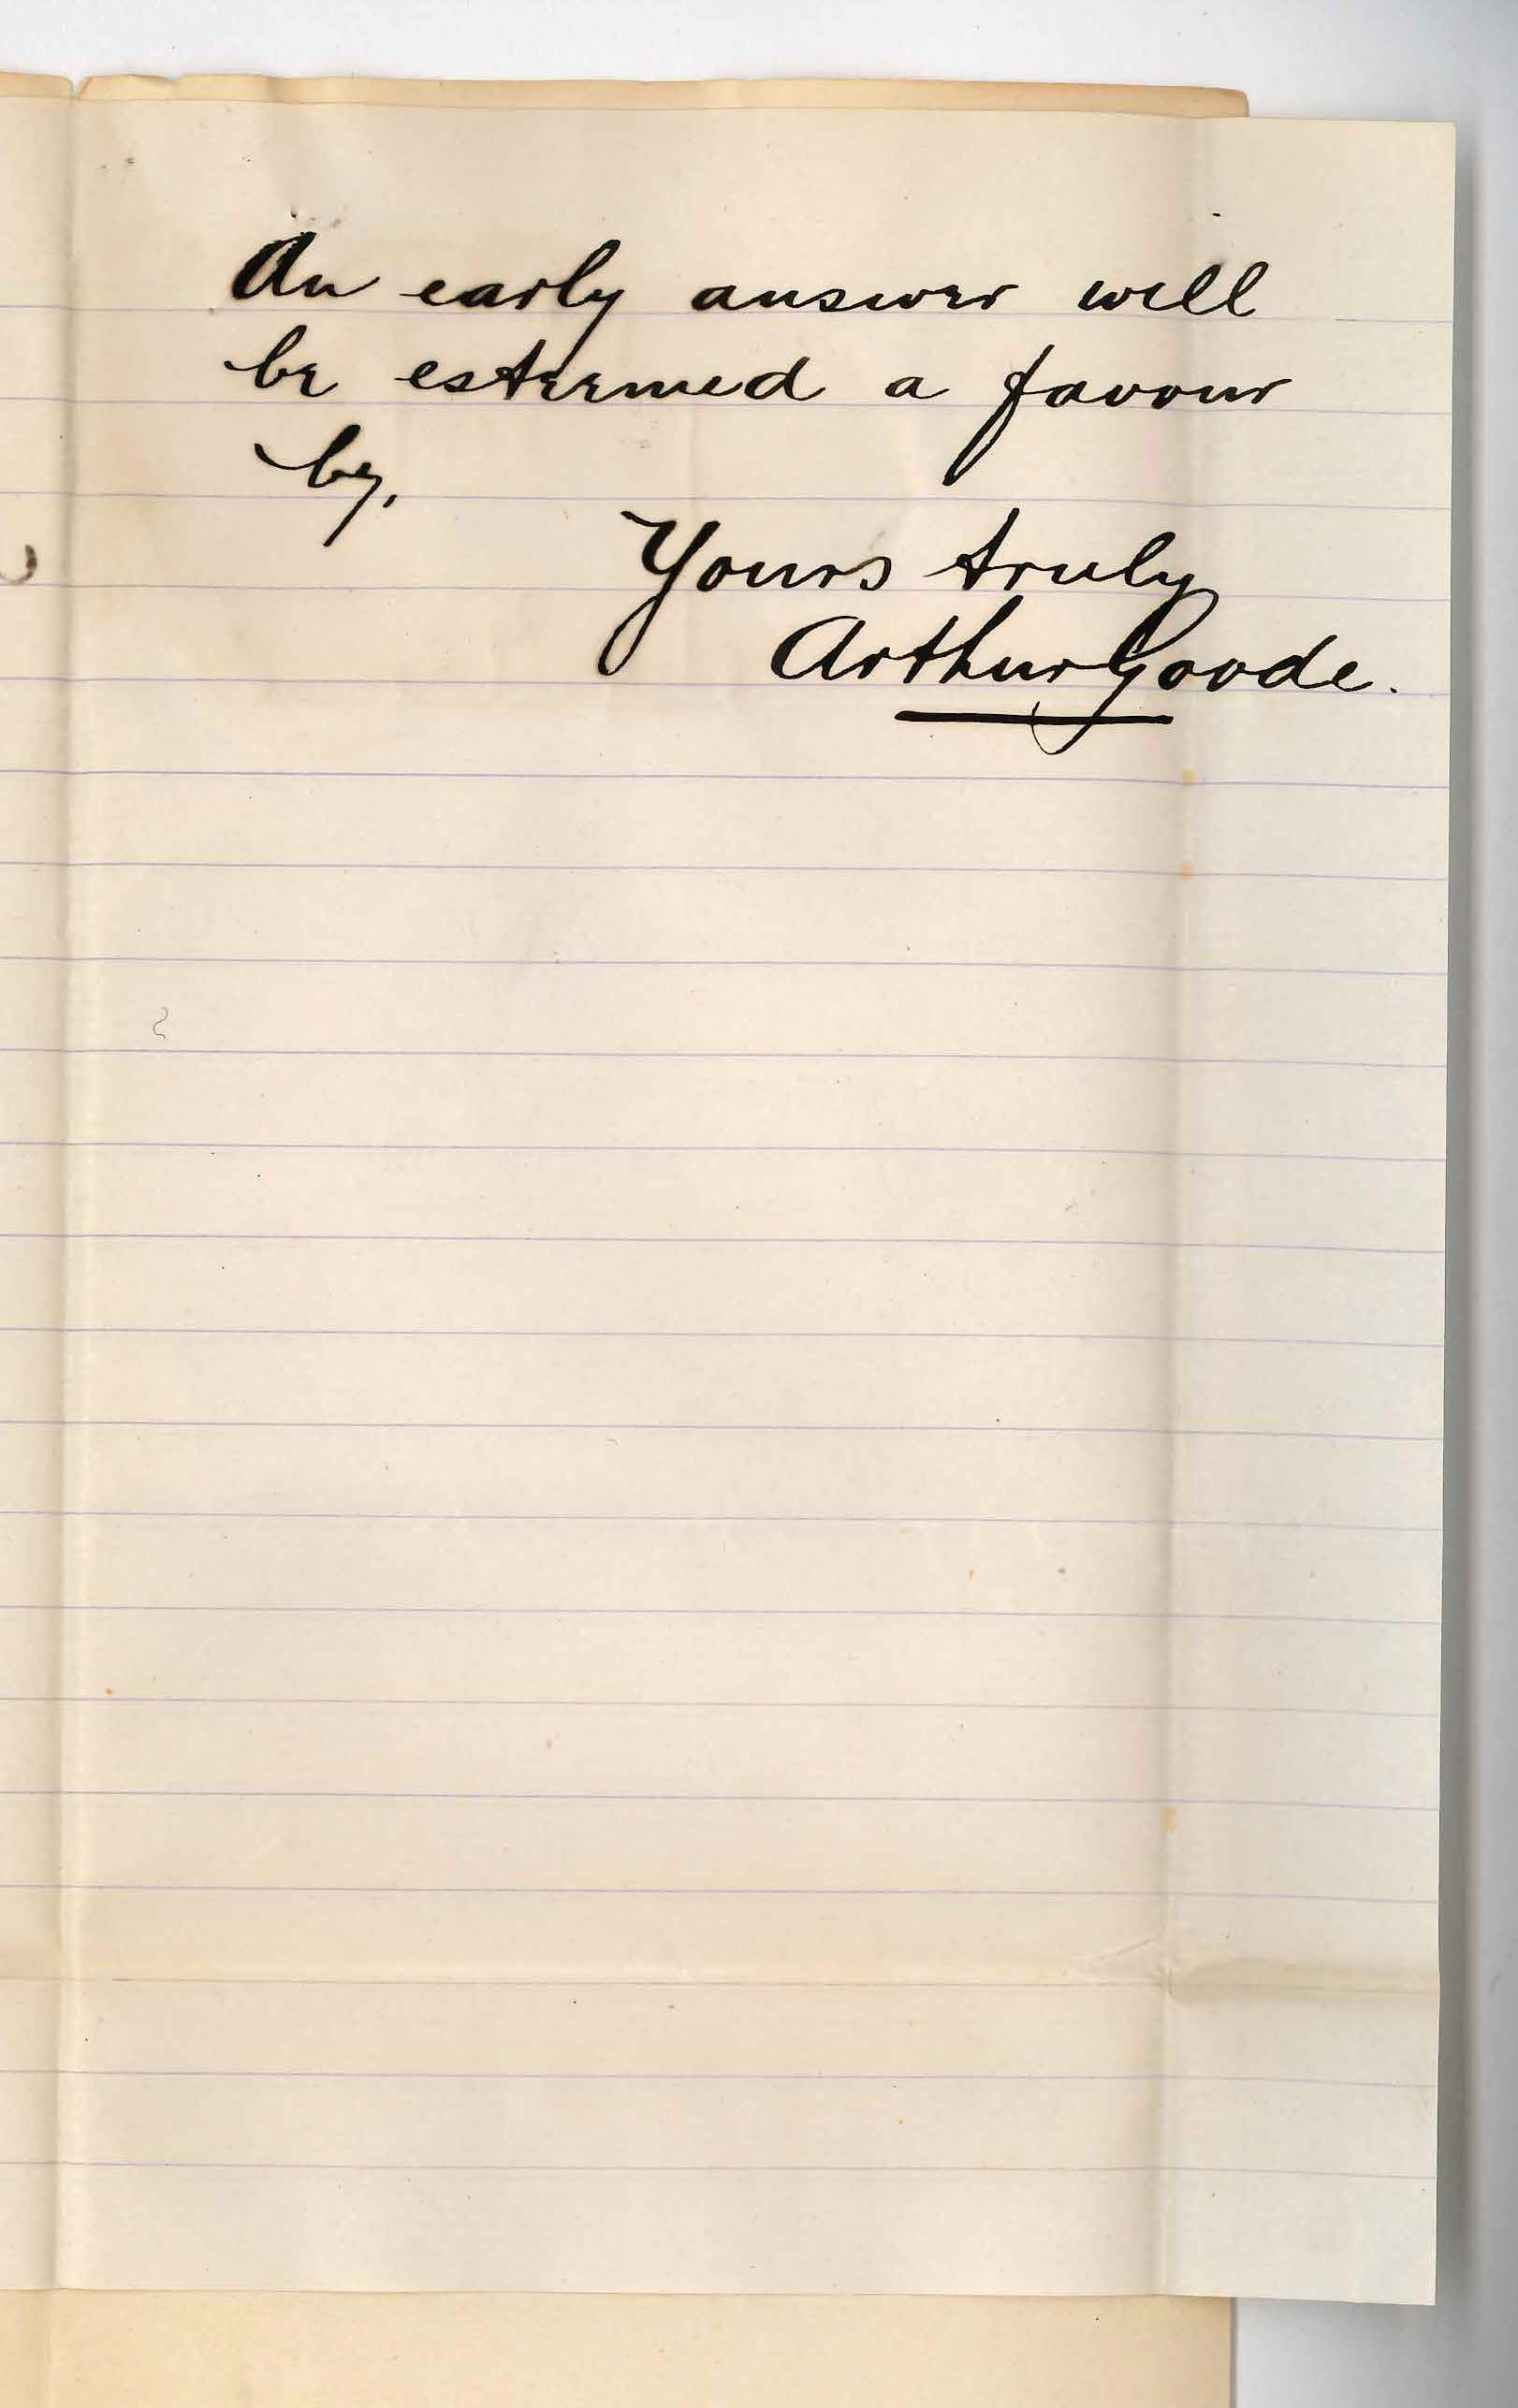 An early answer will
be esteemed a favour
by,
Yours truly
Arthur Goode.